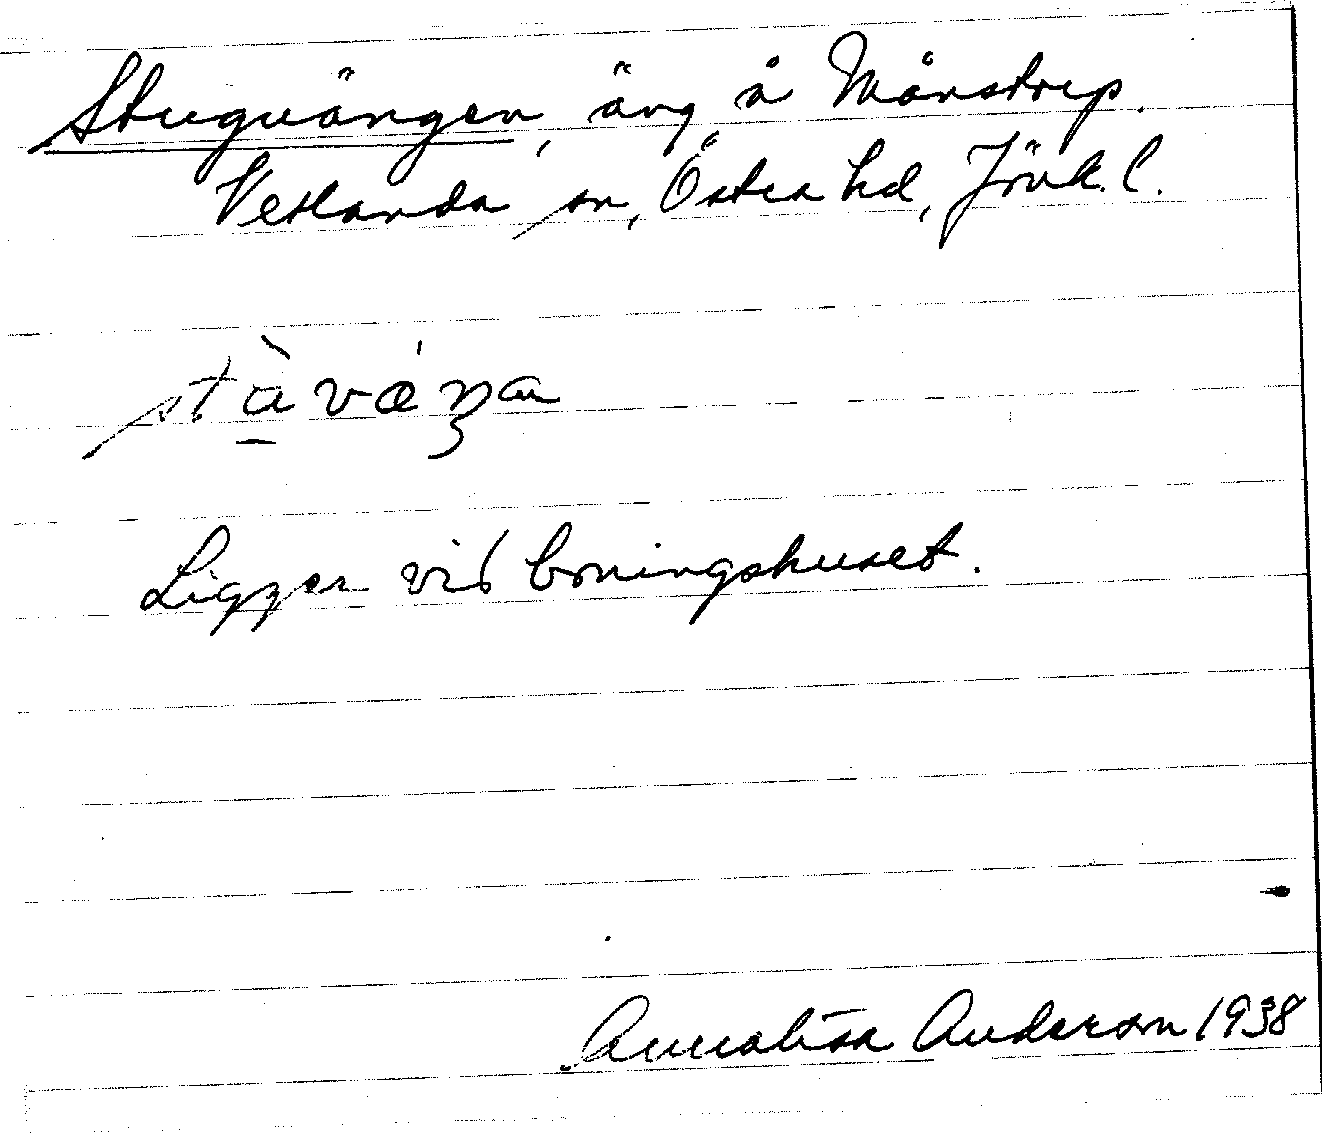 Stuguängen, äng å Månstorp.
Vetlanda sn, Östra hd, Jönk. l.
stàvǽŋa
Ligger vid boningshuset.
Annalisa Anderson 1938